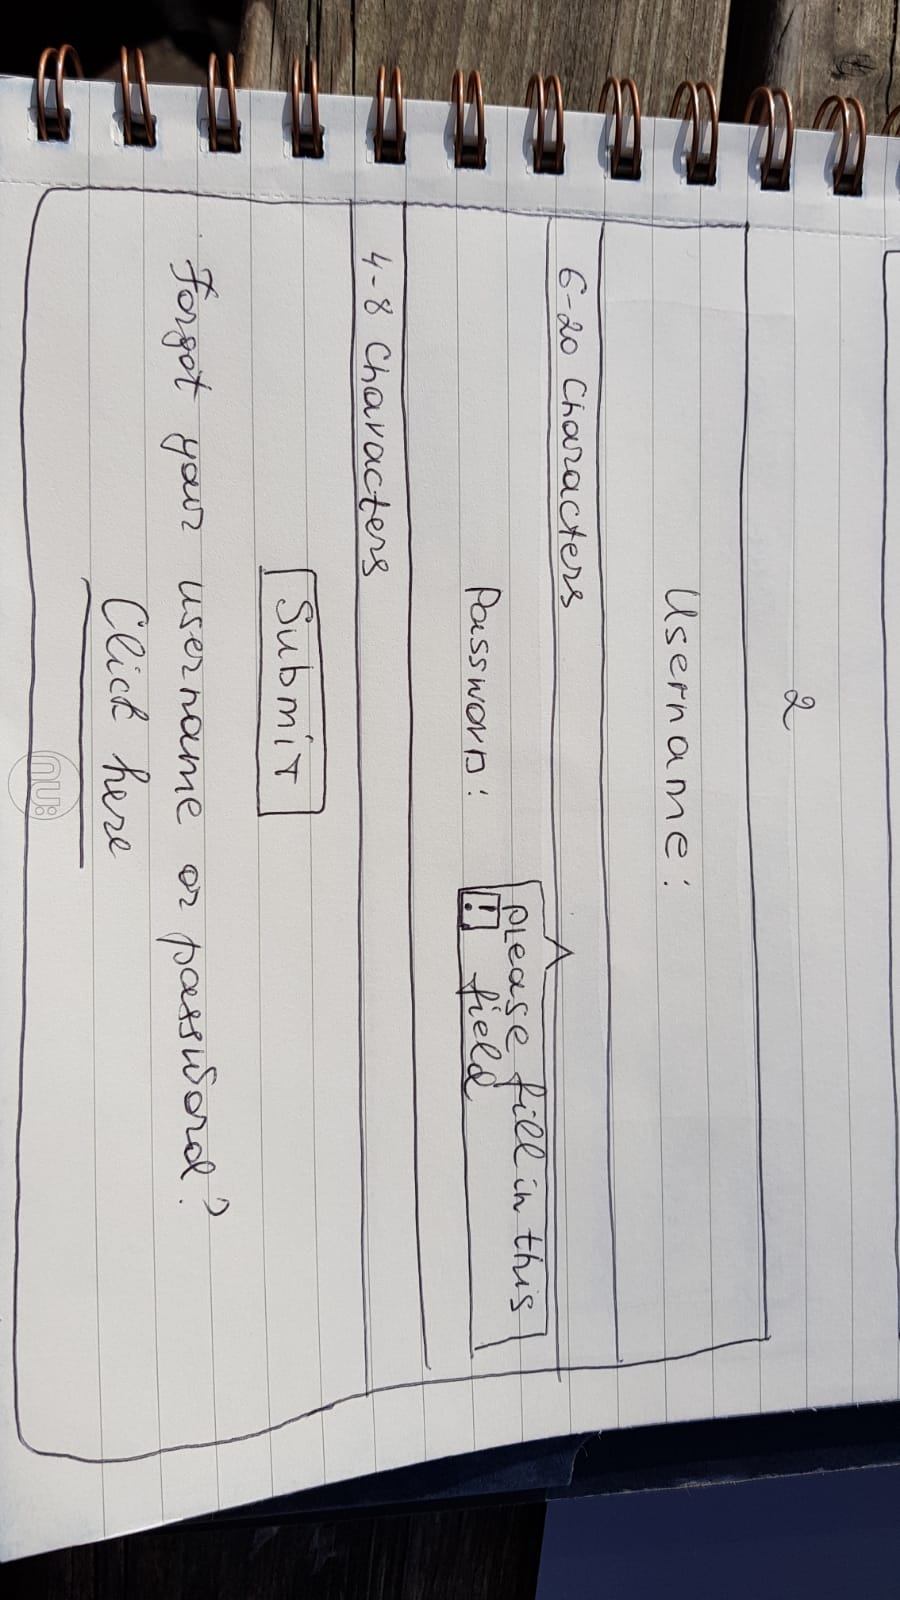 2
Username:
6-20 Characters
Password:
! Please fill in this
field
4-8 Characters
Submit
Forgot your username or password?
Click here
nu: